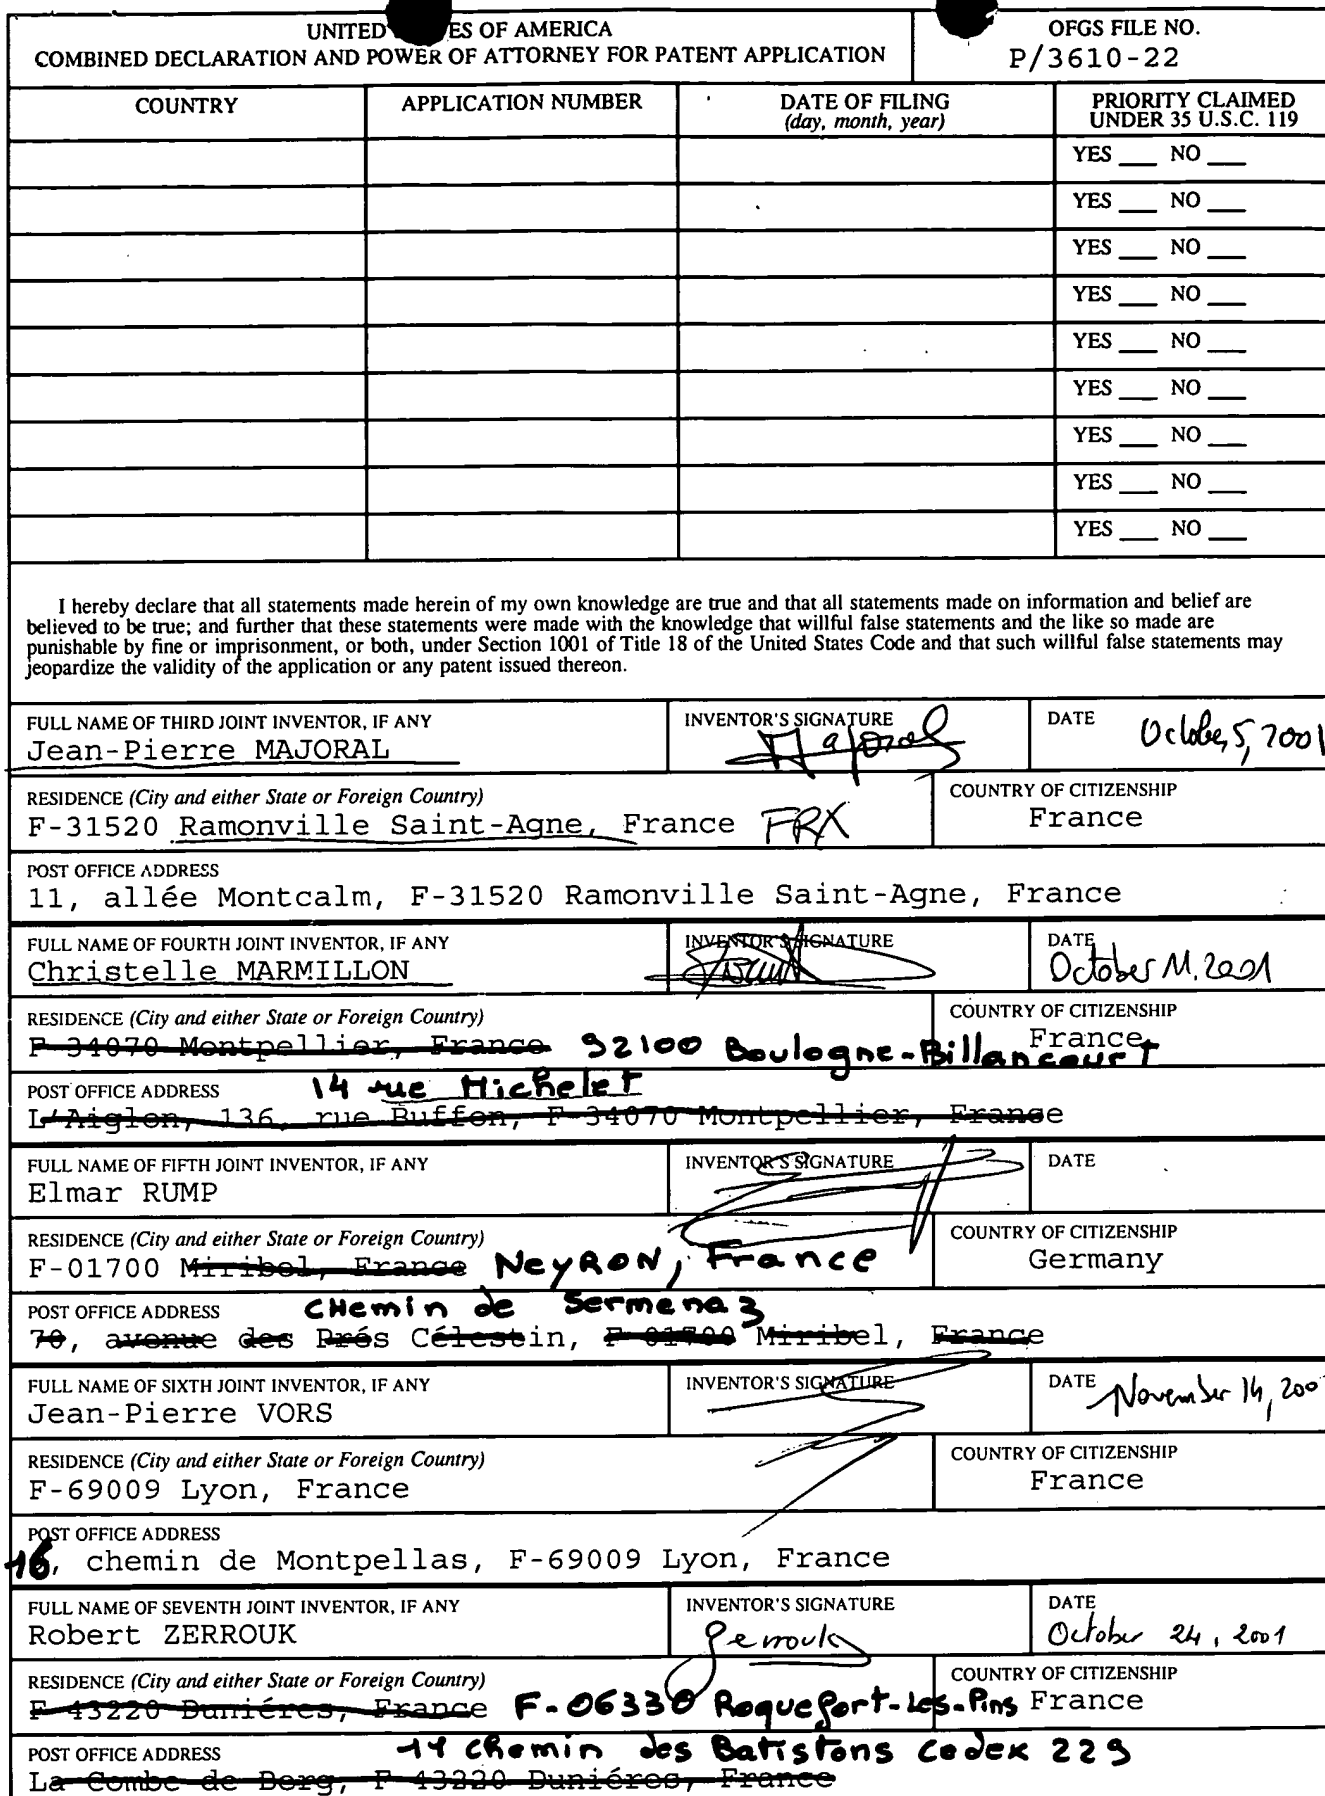 UNITED ES OF AMERICA
COMBINED DECLARATION AND POWER OF ATTORNEY FOR PATENT APPLICATION
OFGS FILE NO.
P/3610-22
COUNTRY APPLICATION NUMBER DATE OF FILING (day, month, year) PRIORITY CLAIMED UNDER 35 U.S.C. 119
YES ___ NO ___
YES ___ NO ___
YES ___ NO ___
YES ___ NO ___
YES ___ NO ___
YES ___ NO ___
YES ___ NO ___
YES ___ NO ___
YES ___ NO ___
I hereby declare that all statements made herein of my own knowledge are true and that all statements made on information and belief are
believed to be true; and further that these statements were made with the knowledge that willful false statements and the like so made are
punishable by fine or imprisonment, or both, under Section 1001 of Title 18 of the United States Code and that such willful false statements may
jeopardize the validity of the application or any patent issued thereon.
FULL NAME OF THIRD JOINT INVENTOR, IF ANY
Jean-Pierre MAJORAL
INVENTOR'S SIGNATURE
Majoral
DATE
October 5, 2001
RESIDENCE (City and either State or Foreign Country)
F-31520 Ramonville Saint-Agne, France FRX
COUNTRY OF CITIZENSHIP
France
POST OFFICE ADDRESS
11, allée Montcalm, F-31520 Ramonville Saint-Agne, France
FULL NAME OF FOURTH JOINT INVENTOR, IF ANY
Christelle MARMILLON
INVENTOR'S SIGNATURE
DATE
October 11. 2001
RESIDENCE (City and either State or Foreign Country)
F-34070 Montpellier, France 92100 Boulogne-Billancourt
COUNTRY OF CITIZENSHIP
France
POST OFFICE ADDRESS 14 rue Michelet
L'Aiglon, 136, rue Buffon, F-34070 Montpellier, France
FULL NAME OF FIFTH JOINT INVENTOR, IF ANY
Elmar RUMP
INVENTOR'S SIGNATURE
DATE
RESIDENCE (City and either State or Foreign Country)
F-01700 Miribel, France NeyRON, France
COUNTRY OF CITIZENSHIP
Germany
POST OFFICE ADDRESS CHemin de Sermenaz
70, avenue des Prés Célestin, F-01700 Miribel, France
FULL NAME OF SIXTH JOINT INVENTOR, IF ANY
Jean-Pierre VORS
INVENTOR'S SIGNATURE
DATE
November 14, 200
RESIDENCE (City and either State or Foreign Country)
F-69009 Lyon, France
COUNTRY OF CITIZENSHIP
France
POST OFFICE ADDRESS
16, chemin de Montpellas, F-69009 Lyon, France
FULL NAME OF SEVENTH JOINT INVENTOR, IF ANY
Robert ZERROUK
INVENTOR'S SIGNATURE
Zerrouk
DATE
October 24, 2001
RESIDENCE (City and either State or Foreign Country)
F-43220 Duniéres, France F-06330 Roquefort-Les-Pins
COUNTRY OF CITIZENSHIP
France
POST OFFICE ADDRESS chemin des Batistons Cedex 229
La Combe de Berg, F-43220 Duniéres, France